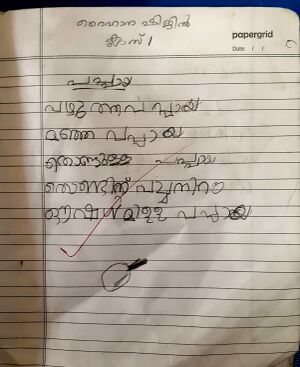 റൈഹാന ഷിജിൻ
ക്ലാസ് 1
papergrid
Date: / /
പപ്പായ
പഴുത്തപപ്പായ
മഞ്ഞ പപ്പായ
തൊണ്ടുള്ള പപ്പായ
തൊണ്ടിന് പച്ചനിറം
പപ്പായ